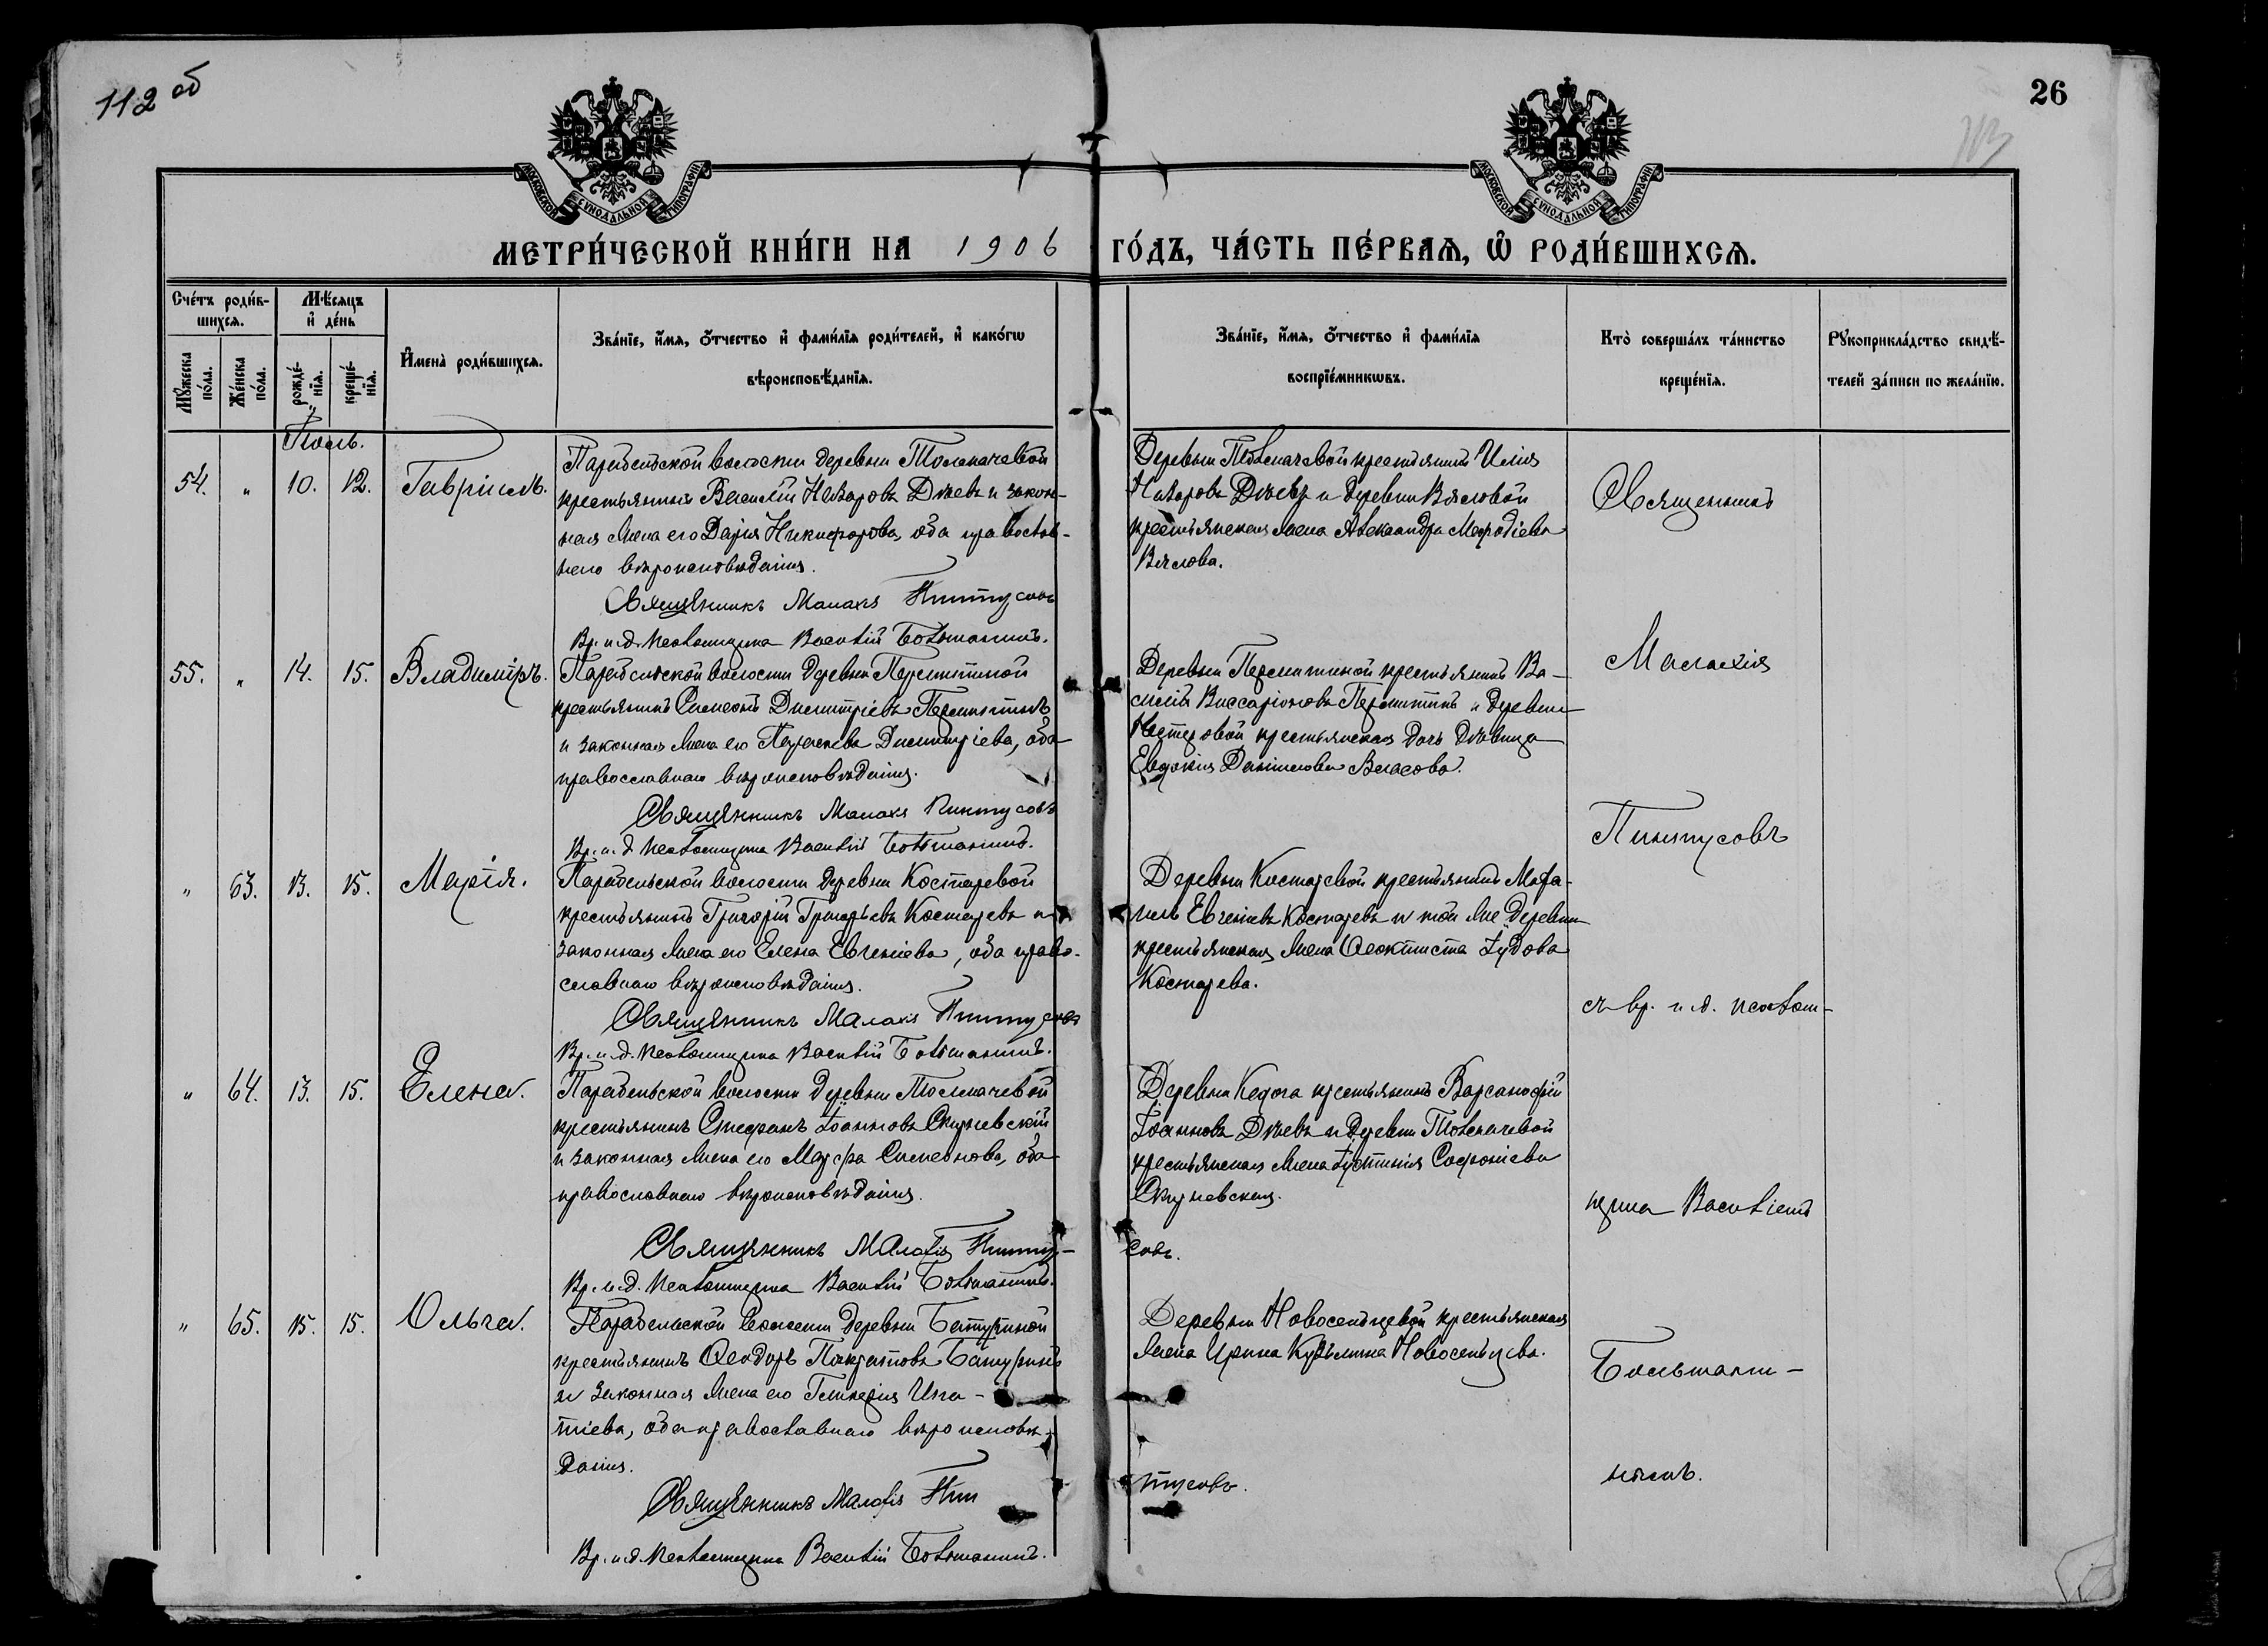 112 об
26
113
МОСКОВСКОЙ СѴНОДАЛЬНОЙ ТИПОГРАФІИ
МОСКОВСКОЙ СѴНОДАЛЬНОЙ ТИПОГРАФІИ
МЕТРИ́ЧЕСКОЙ КНИ́ГИ НА 1906 ГО́ДЪ, ЧА́СТЬ ПЕ́РВАѦ, Ѡ РОДИ́ВШИХСѦ.
Сче́тъ роди́в-
шихсѧ.
Мꙋ́жеска по́ла.
Же́нска по́ла.
Мѣ́сѧцъ
и҆ де́нь
рожде́-
нїѧ.
креще́-
нїѧ.
И҆мена̀ роди́вшихсѧ.
Зва́нїе, и҆́мѧ, ѻ҆́тчество и҆ фами́лїѧ роди́телей, и҆ како́гѡ
вѣроисповѣ́данїѧ.
Зва́нїе, и҆́мѧ, ѻ҆́тчество и҆ фами́лїѧ
воспрїе́мникѡвъ.
Кто̀ соверша́лъ та́инство
креще́нїѧ.
Рꙋкоприкла́дство свидѣ́-
телей за́писи по жела́нїю.
Іюль.
54. " 10. 12. Гавріилъ.
Парабельской волости деревни Толмачевой
крестьянинъ Василій Назаровъ Дѣевъ и закон-
ная жена его Дарія Никифорова, оба православ-
наго вѣроисповѣданія.
Священникъ Малахія Пинтусовъ
Вр. и. д. псаломщика Василій Большанинъ.
Деревни Толмачевой крестьянинъ Илія
Назаровъ Дѣевъ и деревни Вяловой
крестьянская жена Александра Меѳодіева
Вялова.
55. " 14. 15. Владиміръ.
Парабельской волости деревни Перемитиной
крестьянинъ Симеонъ Димитріевъ Перемитинъ
и законная жена его Параскева Димитріева, оба
православнаго вѣроисповѣданія.
Священникъ Малахія Пинтусовъ
Вр. и. д. псаломщика Василій Большанинъ.
Деревни Перемитиной крестьянинъ Ва-
силій Виссаріоновъ Перемитинъ и деревни
Нестеровой крестьянская дочь дѣвица
Евдокія Даніилова Власова.
" 63. 13. 15. Марія.
Парабельской волости деревни Костаревой
крестьянинъ Григорій Григорьевъ Костаревъ и
законная жена его Елена Евгеніева, оба право-
славнаго вѣроисповѣданія.
Священникъ Малахія Пинтусовъ
Вр. и. д. псаломщика Василій Большанинъ.
Деревни Костаревой крестьянинъ
Евгеніевъ Костаревъ и той же деревни
крестьянская жена Ѳеоктиста Іудова
Костарева.
" 64. 13. 15. Елена.
Парабельской волости деревни Толмачевой
крестьянинъ Стефанъ Іоанновъ Скирневскій
и законная жена его Марѳа Симеонова, оба
православнаго вѣроисповѣданія.
Священникъ Малахія Пинту-
совъ.
Вр. и. д. псаломщика Василій Большанинъ.
Деревни Кедога крестьянинъ Варсанофій
Іоанновъ Дѣевъ и деревни Толмачевой
крестьянская жена Іустинія Софоніева
Скирневская.
" 65. 15. 15. Ольга.
Парабельской волости деревни Батуриной
крестьянинъ Ѳеодоръ Панкратовъ Батуринъ
и законная жена его Гликерія Ипа-
тіева, оба православнаго вѣроисповѣ-
данія.
Священникъ Малахія Пин
тусовъ.
Вр. и. д. псаломщика Василій Большанинъ.
Деревни Новосельцевой крестьянская
жена Ирина Кузьмина Новосельцева.
Священникъ
Малахія
Пинтусовъ
съ вр. и. д. псалом-
щика Василіемъ
Больтани-
нымъ.